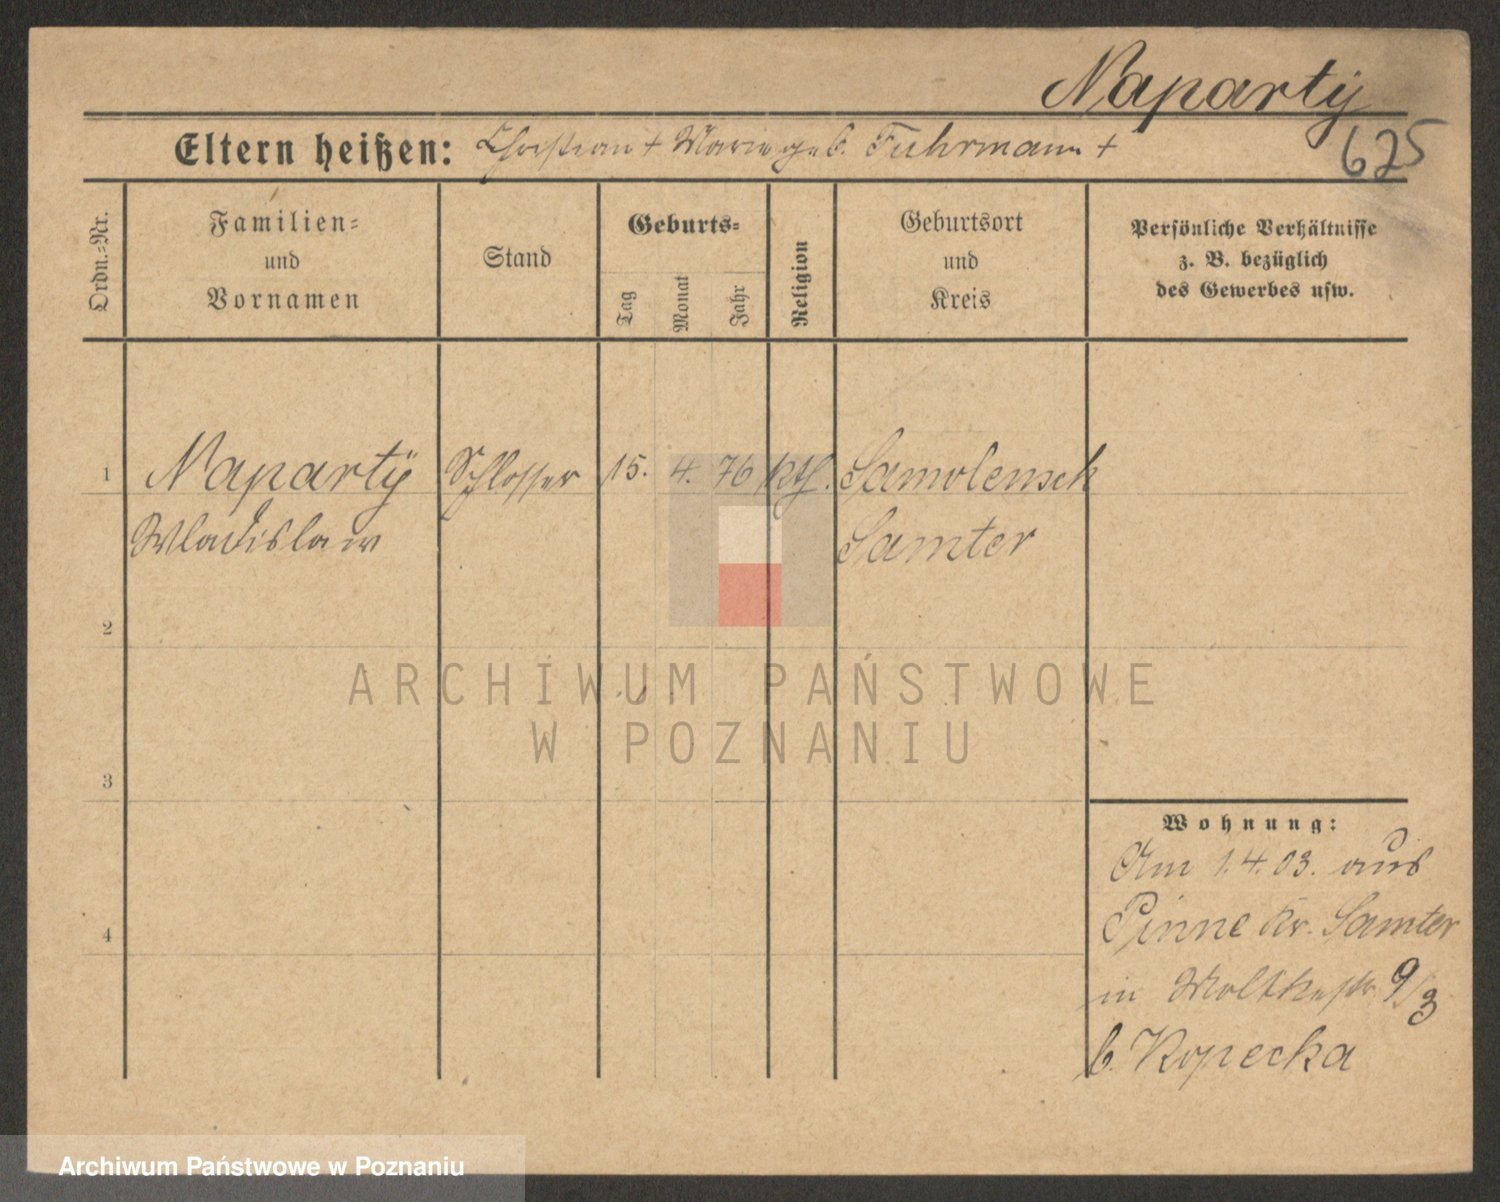 Napartÿ
Eltern heißen: Christian + Marie geb. Fuhrmann +
675
Ordn.-Nr.
Familien-
und
Vornamen
Stand
Geburts-
Tag
Monat
Jahr
Religion
Geburtsort
und
Kreis
Persönliche Verhältnisse
z. B. bezüglich
des Gewerbes usw.
1 Napartÿ Schlosser 15. 4. 76 kth. Samolensch
Wladislaw Samter
2
3
4
Wohnung:
Am 1.4.03. aus
Pinne Kr. Samter
in Moltkestr. 9/3
b. Kopecka
ARCHIWUM PAŃSTWOWE
W POZNANIU
Archiwum Państwowe w Poznaniu